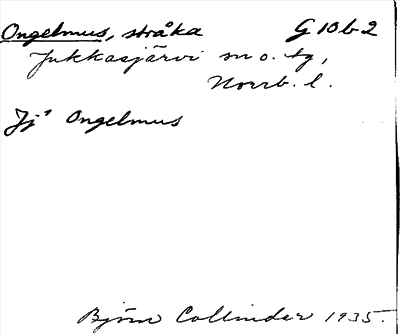 Ongelmus, stråka G 10 b 2
Jukkasjärvi sn o. tg,
Norrb. l.
Jj¹ Ongelmus
Björn Collinder 1935.